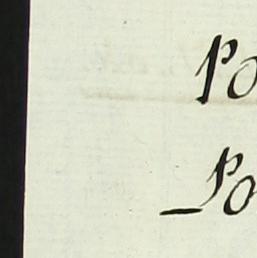 Po
Po